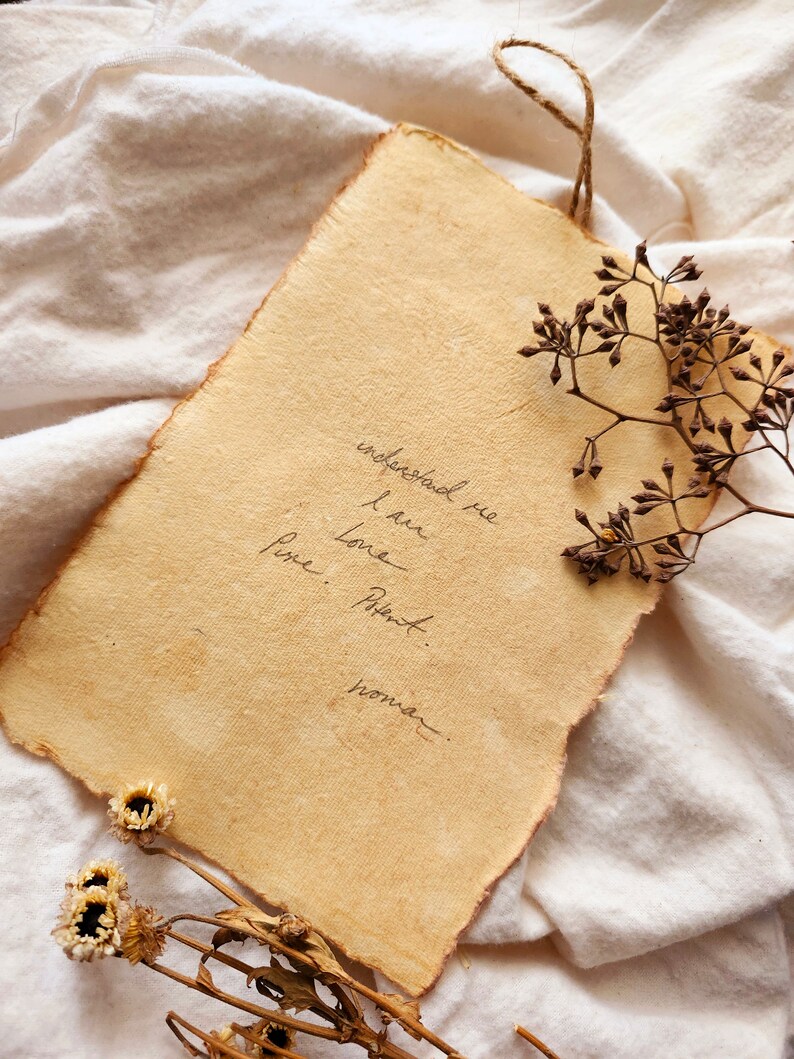 understand me
I am
Love
Pure. Potent.
woman.